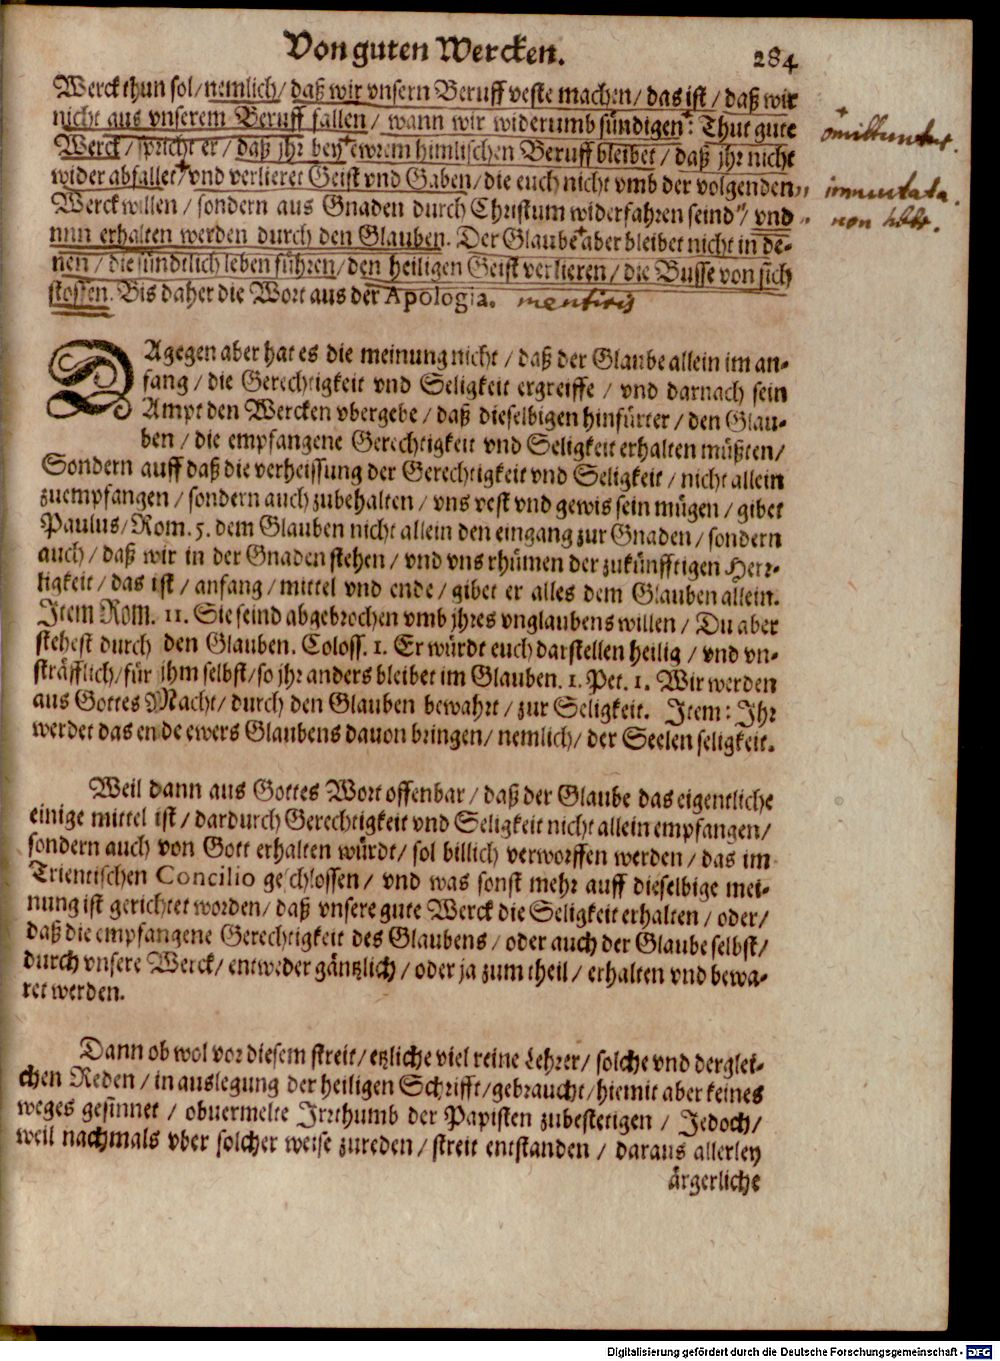 Von guten Wercken. 284
Werck thun sol / nemlich / daß wir vnsern Beruff veste machen / das ist / daß wir
nicht aus vnserem Beruff fallen / wann wir widerumb sündigen: Thut gute
Werck / spricht er / daß jhr bey ewrem himlischen Beruff bleibet / daß jhr nicht
wider abfallet / vnd verlieret Geist vnd Gaben / die euch nicht vmb der volgenden
Werck willen / sondern aus Gnaden durch Christum widerfahren seind / vnd
nun erhalten werden durch den Glauben. Der Glaube aber bleibet nicht in de-
nen / die sündtlich leben führen / den heiligen Geist verlieren / die Busse von sich
stossen. Bis daher die Wort aus der Apologia. mentiris
omittuntur.
immutata.
non
DAgegen aber hat es die meinung nicht / daß der Glaube allein im an-
fang / die Gerechtigkeit vnd Seligkeit ergreiffe / vnd darnach sein
Ampt den Wercken vbergebe / daß dieselbigen hinfürter / den Glau-
ben / die empfangene Gerechtigkeit vnd Seligkeit erhalten müßten /
Sondern auff daß die verheissung der Gerechtigkeit vnd Seligkeit / nicht allein
zuempfangen / sondern auch zubehalten / vns vest vnd gewis sein mügen / gibet
Paulus / Rom. 5. dem Glauben nicht allein den eingang zur Gnaden / sondern
auch / daß wir in der Gnaden stehen / vnd vns rhümen der zukünfftigen Herr-
ligkeit / das ist / anfang / mittel vnd ende / gibet er alles dem Glauben allein.
Item Rom. 11. Sie seind abgebrochen vmb jhres vnglaubens willen / Du aber
stehest durch den Glauben. Coloss. 1. Er würdt euch darstellen heilig / vnd vn-
sträfflich / für jhm selbst / so jhr anders bleibet im Glauben. 1. Pet. 1. Wir werden
aus Gottes Macht / durch den Glauben bewahrt / zur Seligkeit. Item: Ihr
werdet das ende ewers Glaubens dauon bringen / nemlich / der Seelen seligkeit.
Weil dann aus Gottes Wort offenbar / daß der Glaube das eigentliche
einige mittel ist / dardurch Gerechtigkeit vnd Seligkeit nicht allein empfangen /
sondern auch von Gott erhalten würdt / sol billich verworffen werden / das im
Trientischen Concilio geschlossen / vnd was sonst mehr auff dieselbige mei-
nung ist gerichtet worden / daß vnsere gute Werck die Seligkeit erhalten / oder /
daß die empfangene Gerechtigkeit des Glaubens / oder auch der Glaube selbst /
durch vnsere Werck / entweder gäntzlich / oder ja zum theil / erhalten vnd bewa-
ret werden.
Dann ob wol vor diesem streit / etzliche viel reine Lehrer / solche vnd derglei-
chen Reden / in auslegung der heiligen Schrifft / gebraucht / hiemit aber keines
weges gesinnet / obuermelte Irrthumb der Papisten zubestetigen / Jedoch /
weil nachmals vber solcher weise zureden / streit entstanden / daraus allerley
ärgerliche
Digitalisierung gefördert durch die Deutsche Forschungsgemeinschaft - DFG